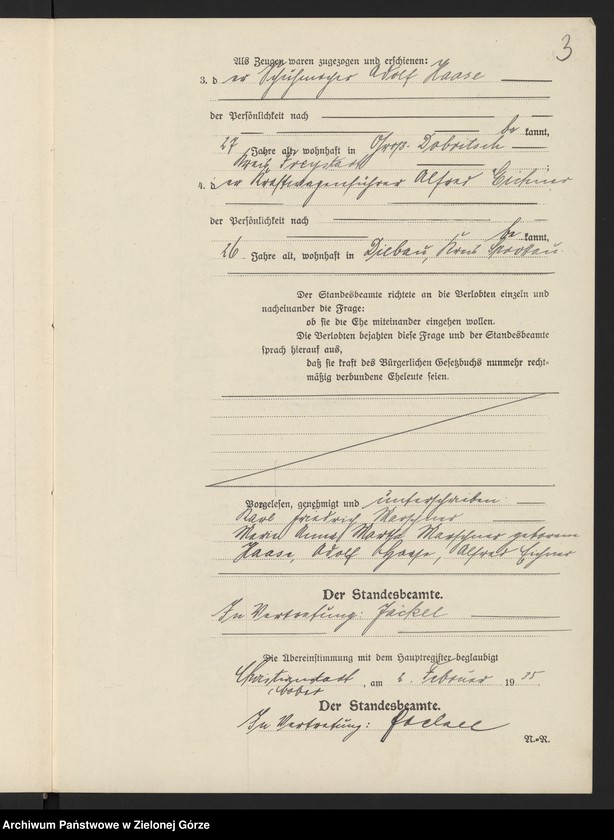 3
Als Zeugen waren zugezogen und erschienen:
3. der Schuhmacher Adolf Haase
der Persönlichkeit nach
be kannt,
27 Jahre alt, wohnhaft in Groß Dobritsch
Kreis Freystadt ;
4. der Kraftwagenführer Alfred Eichner
der Persönlichkeit nach
be kannt,
26 Jahre alt, wohnhaft in Dilbau, Kreis
Der Standesbeamte richtete an die Verlobten einzeln und
nacheinander die Frage:
ob sie die Ehe miteinander eingehen wollen.
Die Verlobten bejahten diese Frage und der Standesbeamte
sprach hierauf aus,
daß sie kraft des Bürgerlichen Gesetzbuchs nunmehr recht-
mäßig verbundene Eheleute seien.
Vorgelesen, genehmigt und unterschrieben
Karl Friedrich Marschner
Marie Anna Martha Marschner geborene
Haase, Adolf Haase, Alfred Eichner
Der Standesbeamte.
In Vertretung: Jäckel
Die Übereinstimmung mit dem Hauptregister beglaubigt
Christianstadt , am 6. Februar 19 25
Bober
Der Standesbeamte.
In Vertretung: Jäckel
N.-R.
Archiwum Państwowe w Zielonej Górze